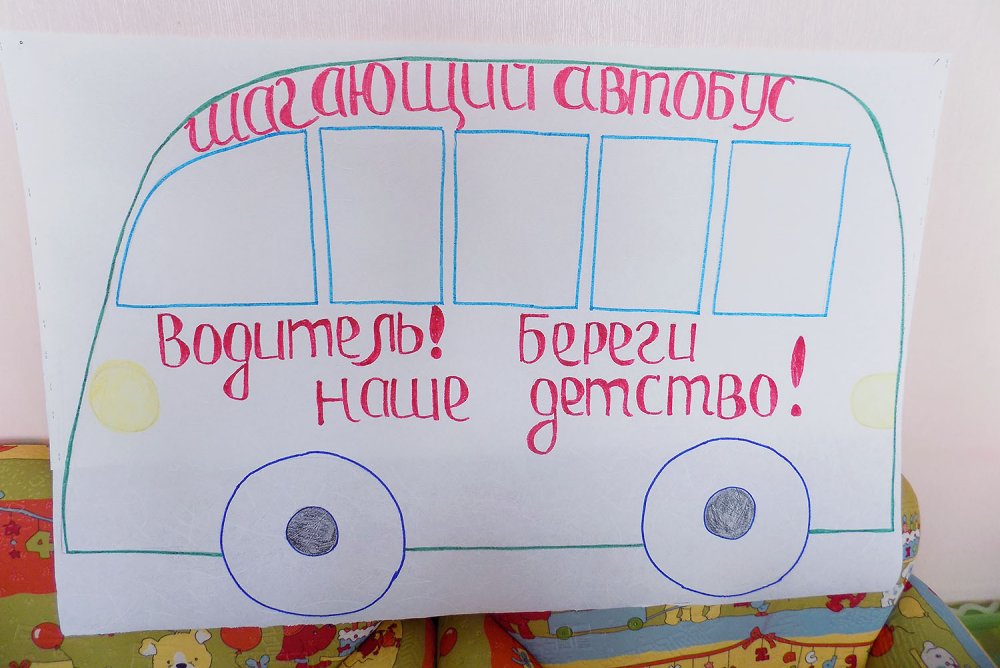 шагающий автобус
Водитель! Береги
наше детство!